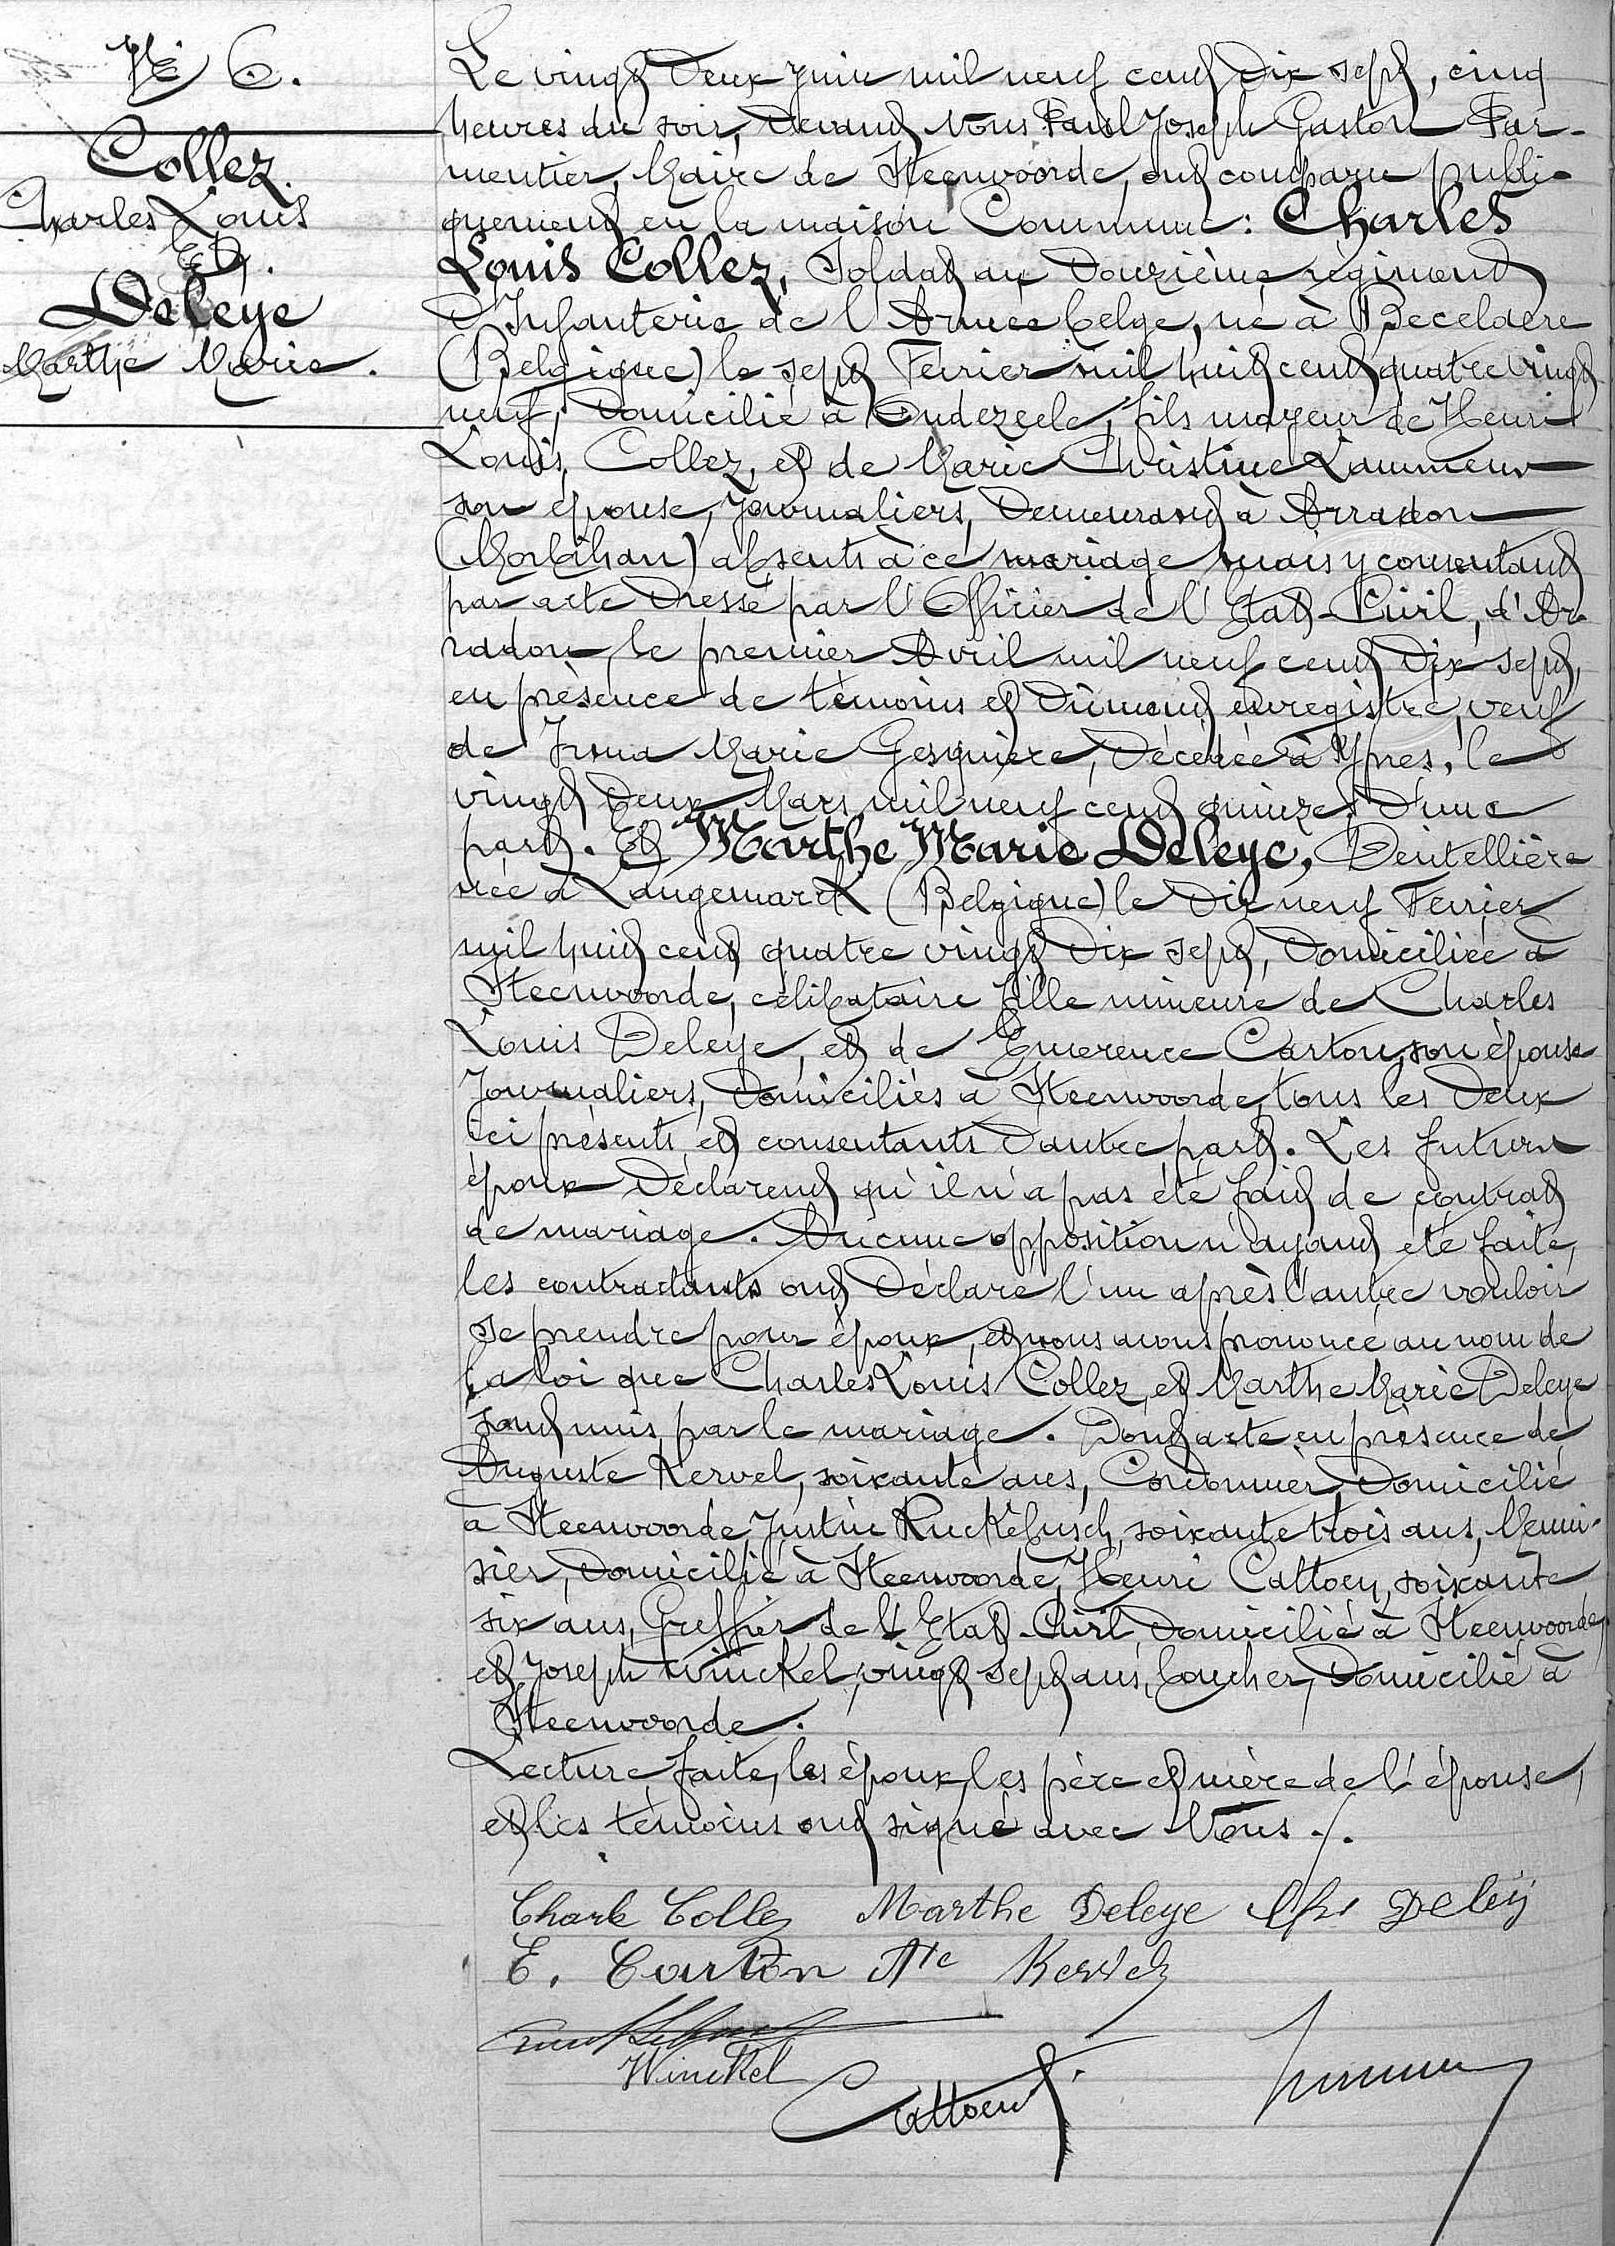 N° 6.
Collez
Charles Louis
Et.
Deleye
Marthe Marie.
Le vingt Deux Juin mil neuf cent Dix sept, cinq
heures du soir, Devant Nous Paul Joseph Gaston Par-
mentier, Maire de Steenvoorde, ont comparu publi-
quement en la maison Commune : Charles
Louis Collez, Soldat au Douzième régiment
D'Infanterie de l'Armée belge, né à Beceldere
(Belgique) le sept Février mil huit cent quatre vingt
neuf, Domicilié à Oudezeele, fils majeur de Henri
Louis Collez, et de Marie Christine Lammens
son épouse, Journaliers, Demeurant à Arradon
(Morbihan) absents à ce mariage mais y consentant
par acte Dressé par l'Officier de l'Etat-Civil, d'Ar-
radon, le premier Avril mil neuf cent Dix sept,
en présence de témoins et Dûment enregistré, veuf
de Irma Marie Gesquière, Décédée à Ypres, le
vingt Deux Mars mil neuf cent quinze, D'une
part. Et Marthe Marie Deleye, Dentellière
née à Langemarck (Belgique) le Dix neuf Février
mil huit cent quatre vingt Dix sept, Domiciliée à
Steenvoorde, célibataire fille mineure de Charles
Louis Deleye, et de Emerence Carton, son épouse
Journaliers, Domiciliés à Steenvoorde, tous les Deux
ici présents et consentants D'autre part. Les futurs
époux Déclarent qu'il n'a pas été fait de contrat
de mariage. Aucune opposition n'ayant été faite,
les contractants ont Déclaré l'un après l'autre vouloir
se prendre pour époux, et nous avons prononcé au nom de
la loi que Charles Louis Collez, et Marthe Marie Deleye
sont unis par le mariage. Dont acte en présence de
Auguste Kervel, soixante ans, Cordonnier, Domicilié
à Steenvoorde, Justin Ruckebusch, soixante trois ans, Menui-
sier, Domicilié à Steenvoorde, Henri Cattoen, soixante
six ans, Greffier de l'Etat-Civil, Domicilié à Steenvoorde,
et Joseph Winckel, vingt sept ans, boucher, Domicilié à
Steenvoorde.
Lecture faite, les époux, les père et mère de l'épouse,
et les témoins ont signé avec Nous ./.
Charle Collez Marthe Deleye Chs Deleij
E. Carton Ate Kervel
Winckel
Cattoen